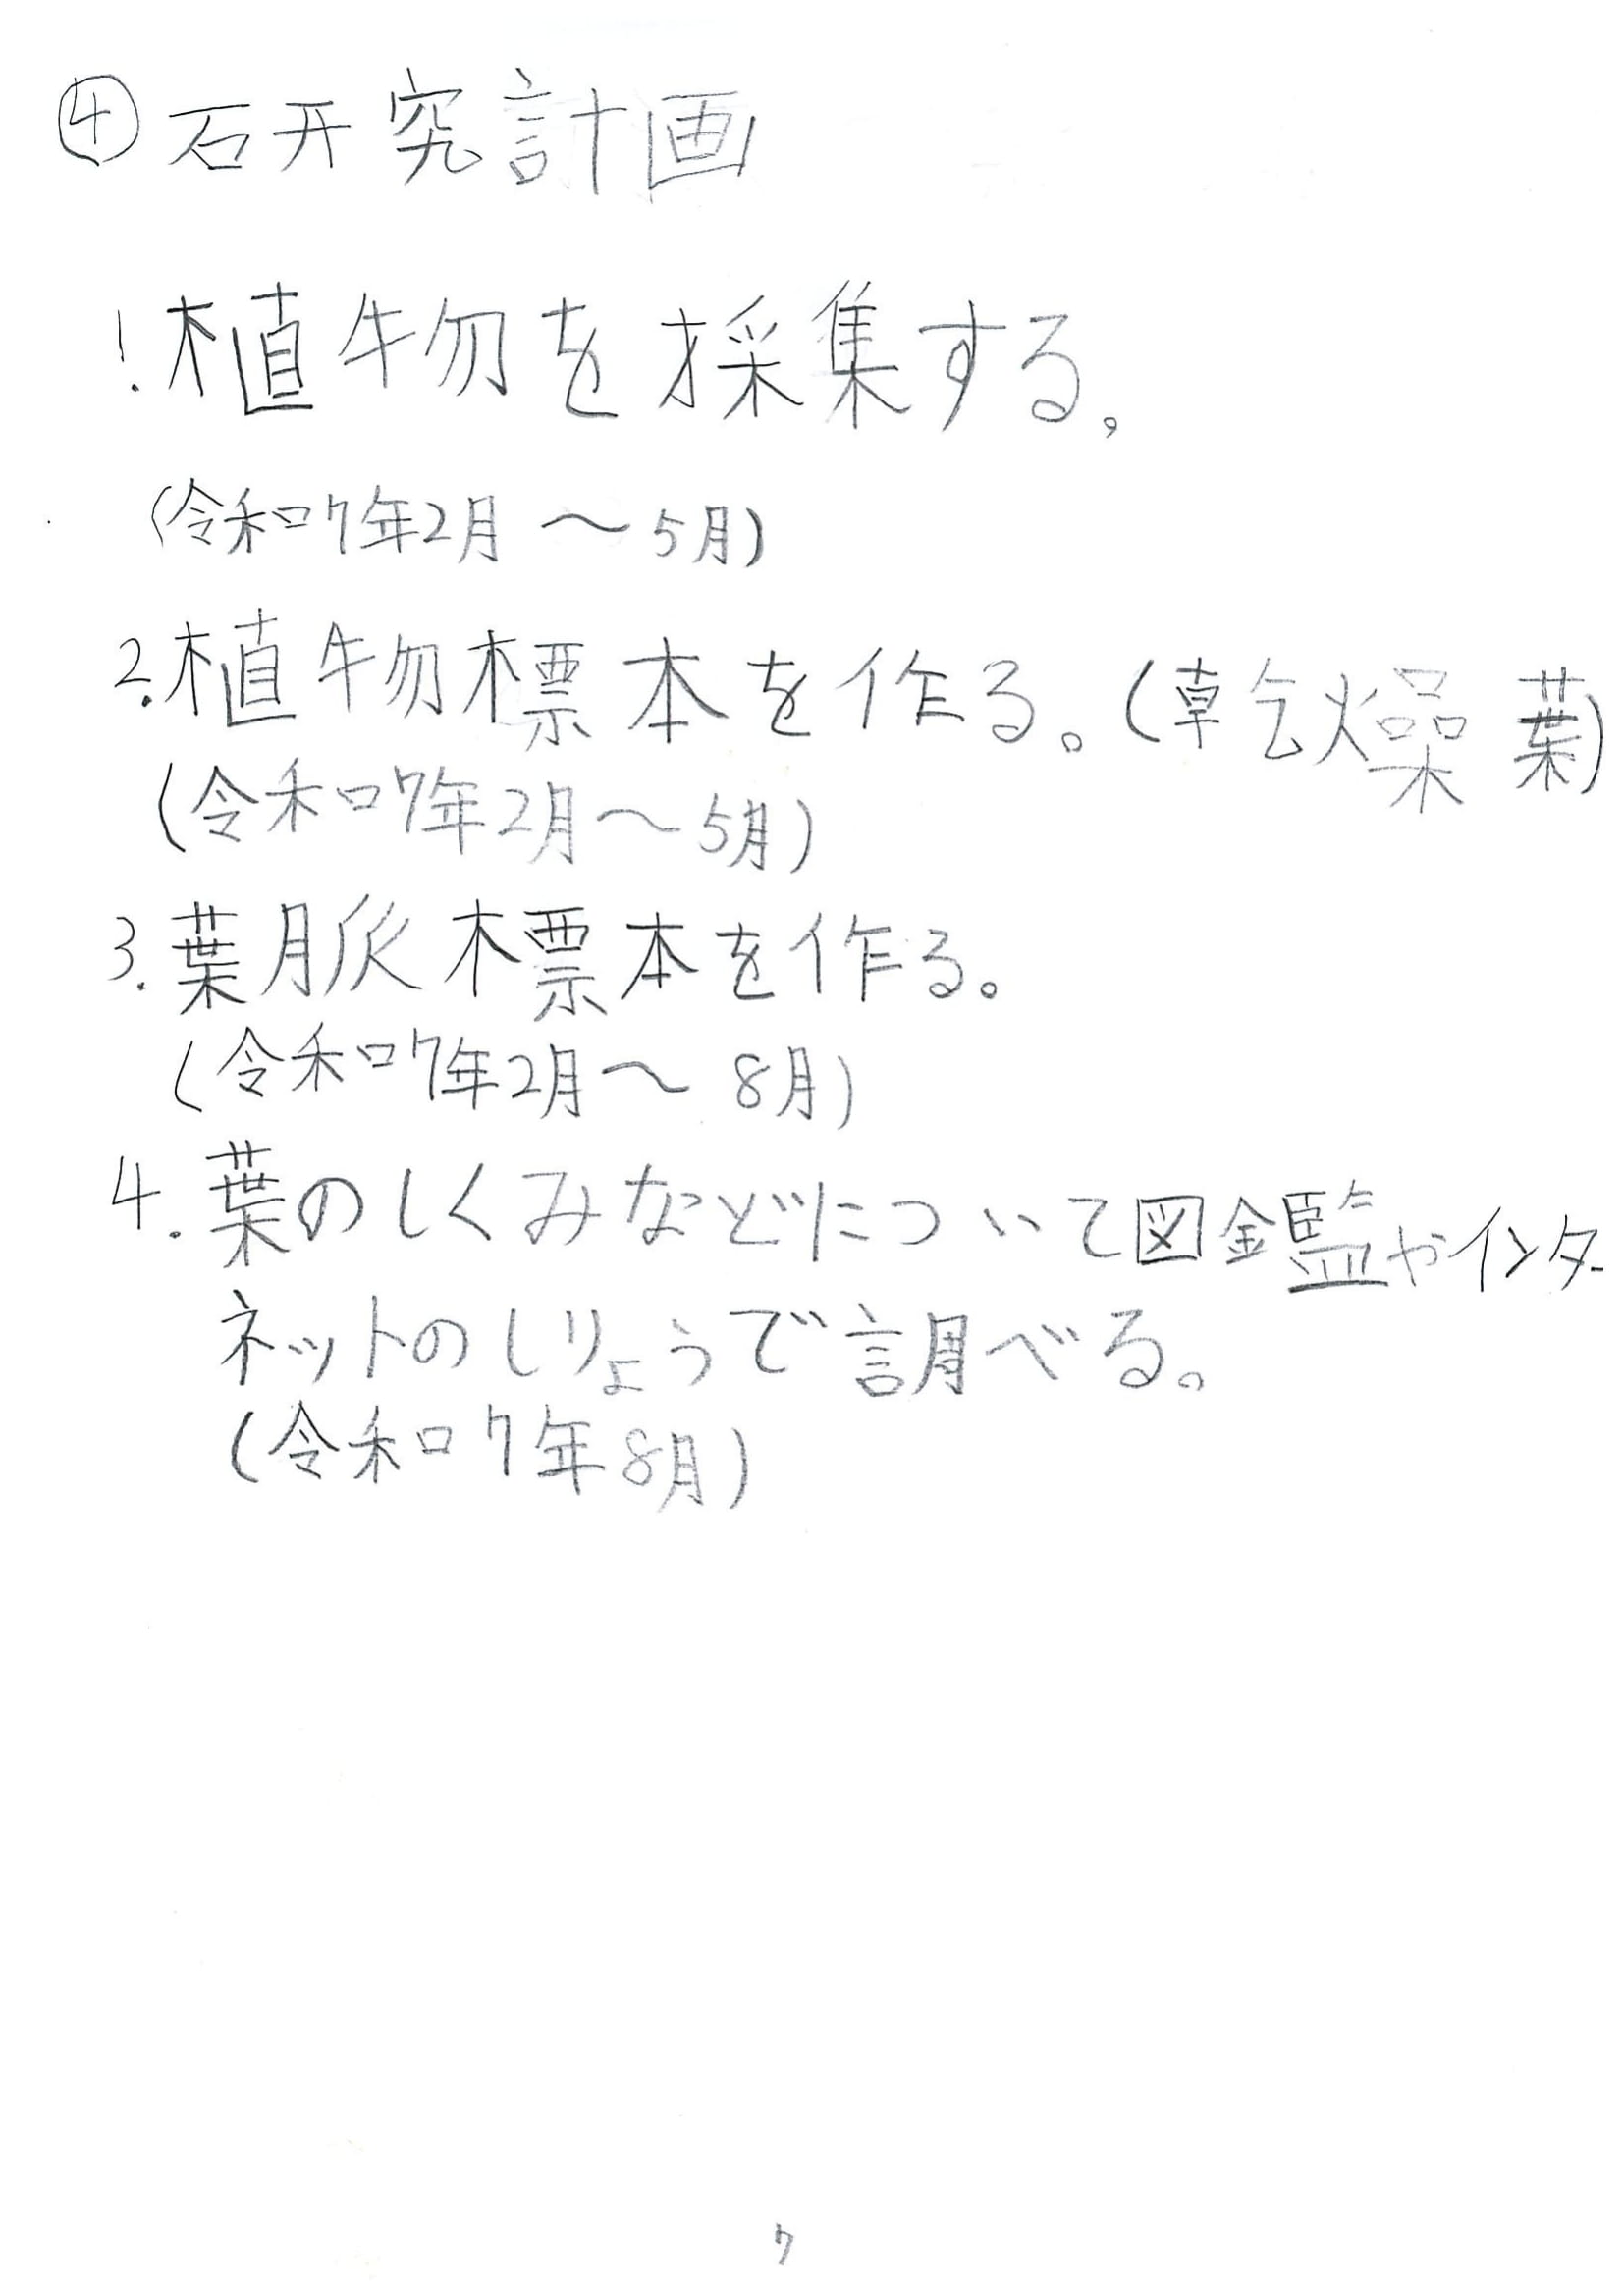 ④研究計画
1.植物を採集する。
(令和7年2月〜5月)
2.植物標本を作る。(乾燥葉)
(令和7年2月〜5月)
3.葉脈標本を作る。
(令和7年2月〜8月)
4.葉のしくみなどについて図鑑やインター
ネットのしりょうで調べる。
(令和7年8月)
7